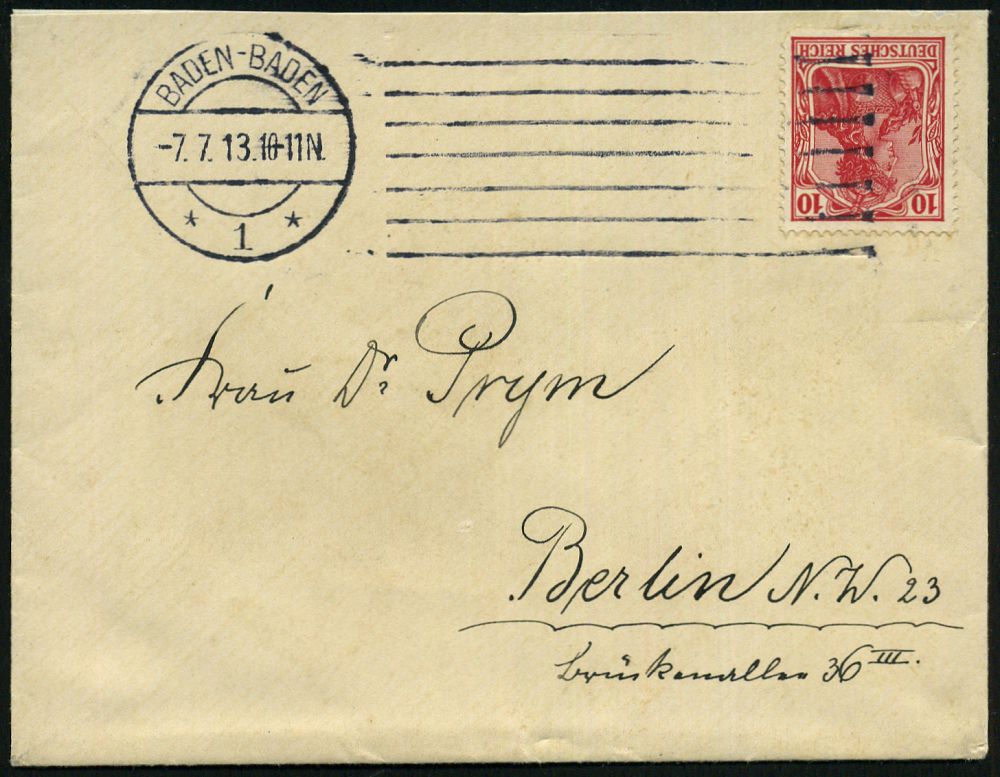 BADEN-BADEN
-7.7.13.10-11N.
* 1 *
DEUTSCHES REICH
10 10
Frau Dr. Prym
Berlin N.W. 23
Brückenallee 36 III.